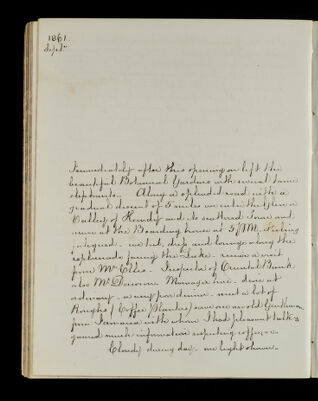 1861.
Septr.
Immediately after this opening we left the
beautiful Botanical Gardens with several tame
elephants. Along a splendid road with a
gradual descent of 5 miles we enter the
Valley of Kandy and its scattered Town and
arrive at the Boarding house at 5 P.M. Feeling
fatigued. we tub, dress and lounge along the
esplanade facing the Lake. receive a visit
from Mr. Inspector of Oriental Bank
also Mr. Manager here. dine at
a very poor dinner. met a lot of
Roughs (Coffee Planters) and one old Gentleman
from Jamaica with whom I had pleasant talk &
gained much information respecting coffee.
Cloudy during day. one light shower.